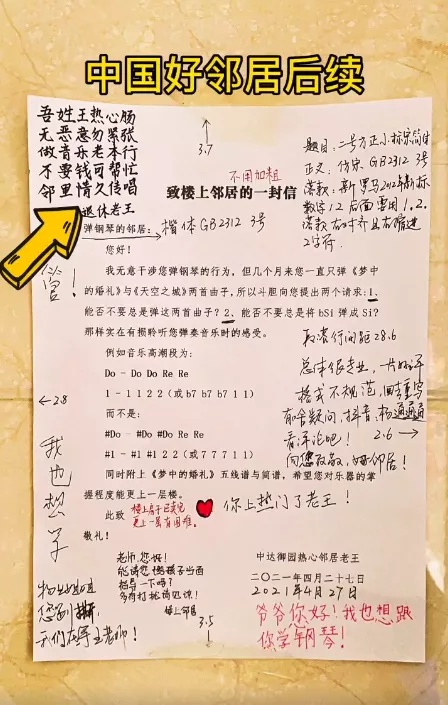 中国好邻居后续
吾姓王热心肠
无恶意勿紧张
做音乐老本行
不要钱可帮忙
邻里情久传唱
退休老王
3.7
不用加粗
致楼上邻居的一封信
题目：二号方正小标宋简体
正文：仿宋 GB2312 3号
落款：新罗马
数字1.2.后面要用1.2.
落款右对齐且右缩进
2字符.
弹钢琴的邻居：
楷体GB2312 3号
您好！
我无意干涉您弹钢琴的行为，但几个月来您一直只弹《梦中
的婚礼》与《天空之城》两首曲子，所以斗胆向您提出两个请求：1、
能否不要总是弹这两首曲子？2、能否不要总是将 bSi 弹成 Si?
那样实在有损聆听您弹奏音乐时的感受。
例如音乐高潮段为：
Do - Do Do Re Re
1 - 1 1 2 2（或 b7 b7 b7 1 1）
而不是：
#Do - #Do #Do Re Re
#1 - #1 #1 2 2（或 7 7 7 1 1）
同时附上《梦中的婚礼》五线谱与简谱，希望您对乐器的掌
握程度能更上一层楼。
此致
敬礼！
行间距28.6
总体很专业，一片好评
格式不规范，回去重写
如若疑问，抖音
看评论吧！
2.6→
向您致敬，好邻居！
←2.8
我也想学
楼上房子已卖完
更上一层有困难。
你上热门了老王！
老师，您好！
能请您把孩子当面
指导一下吗？
多有打扰请见谅！
楼上邻居
中达御园热心邻居老王
二〇二一年四月二十七日
2021年4月27日
您别撕，
我们在学王老师！
3.5
爷爷你好！我也想跟
你学钢琴！